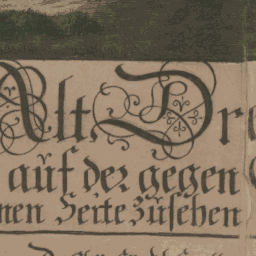 Alt Dre
auf der gegen
nen Seite zusehen